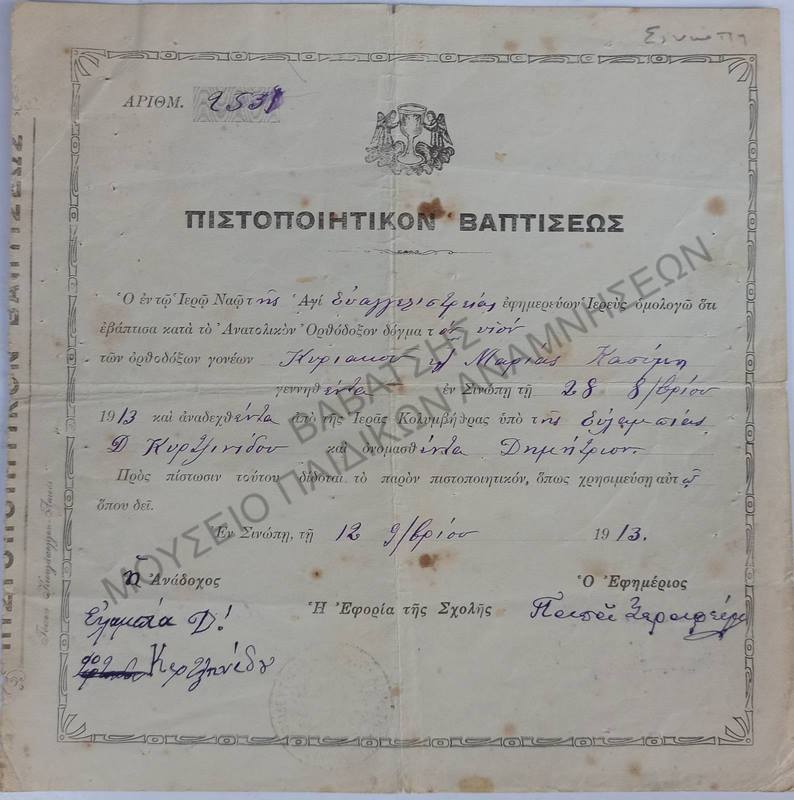 Σινώπη
ΑΡΙΘΜ. 2531
ΠΙΣΤΟΠΟΙΗΤΙΚΟΝ ΒΑΠΤΙΣΕΩΣ
Ὁ ἐν τῷ Ἱερῷ Ναῷ τῆς Ἁγί Εὐαγγελιστρείας ἐφημερεύων Ἱερεὺς ὁμολογῶ ὅτι
ἐβάπτισα κατὰ τὸ Ἀνατολικὸν Ὀρθόδοξον δόγμα τὸν υἱὸν
τῶν ὀρθοδόξων γονέων Κυριακου κ Μαρίας Κασίμη
γεννηθέντα ἐν Σινώπῃ τῇ 28 8/βρίου
1913 καὶ ἀναδεχθέντα ἀπὸ τῆς Ἱερᾶς Κολυμβήθρας ὑπὸ τῆς Εὐλαμπίας
Δ Κυρτζινίδου καὶ ὀνομασθέντα Δημήτριον.
Πρὸς πίστωσιν τούτου δίδοται τὸ παρὸν πιστοποιητικόν, ὅπως χρησιμεύσῃ αὐτῷ
ὅπου δεῖ.
Ἐν Σινώπῃ, τῇ 12 9/βρίου 1913.
Ἡ Ἀνάδοχος
Ὁ Ἐφημέριος
Ἡ Ἐφορία τῆς Σχολῆς
Εὐλαμπία Δ!
ΠΙΣΤΟΠΟΙΗΤΙΚΟΝ ΒΑΠΤΙΣΕΩΣ
ΒΑΒΑΤΣΗΣ
ΜΟΥΣΕΙΟ ΠΑΙΔΙΚΩΝ ΑΝΑΜΝΗΣΕΩΝ